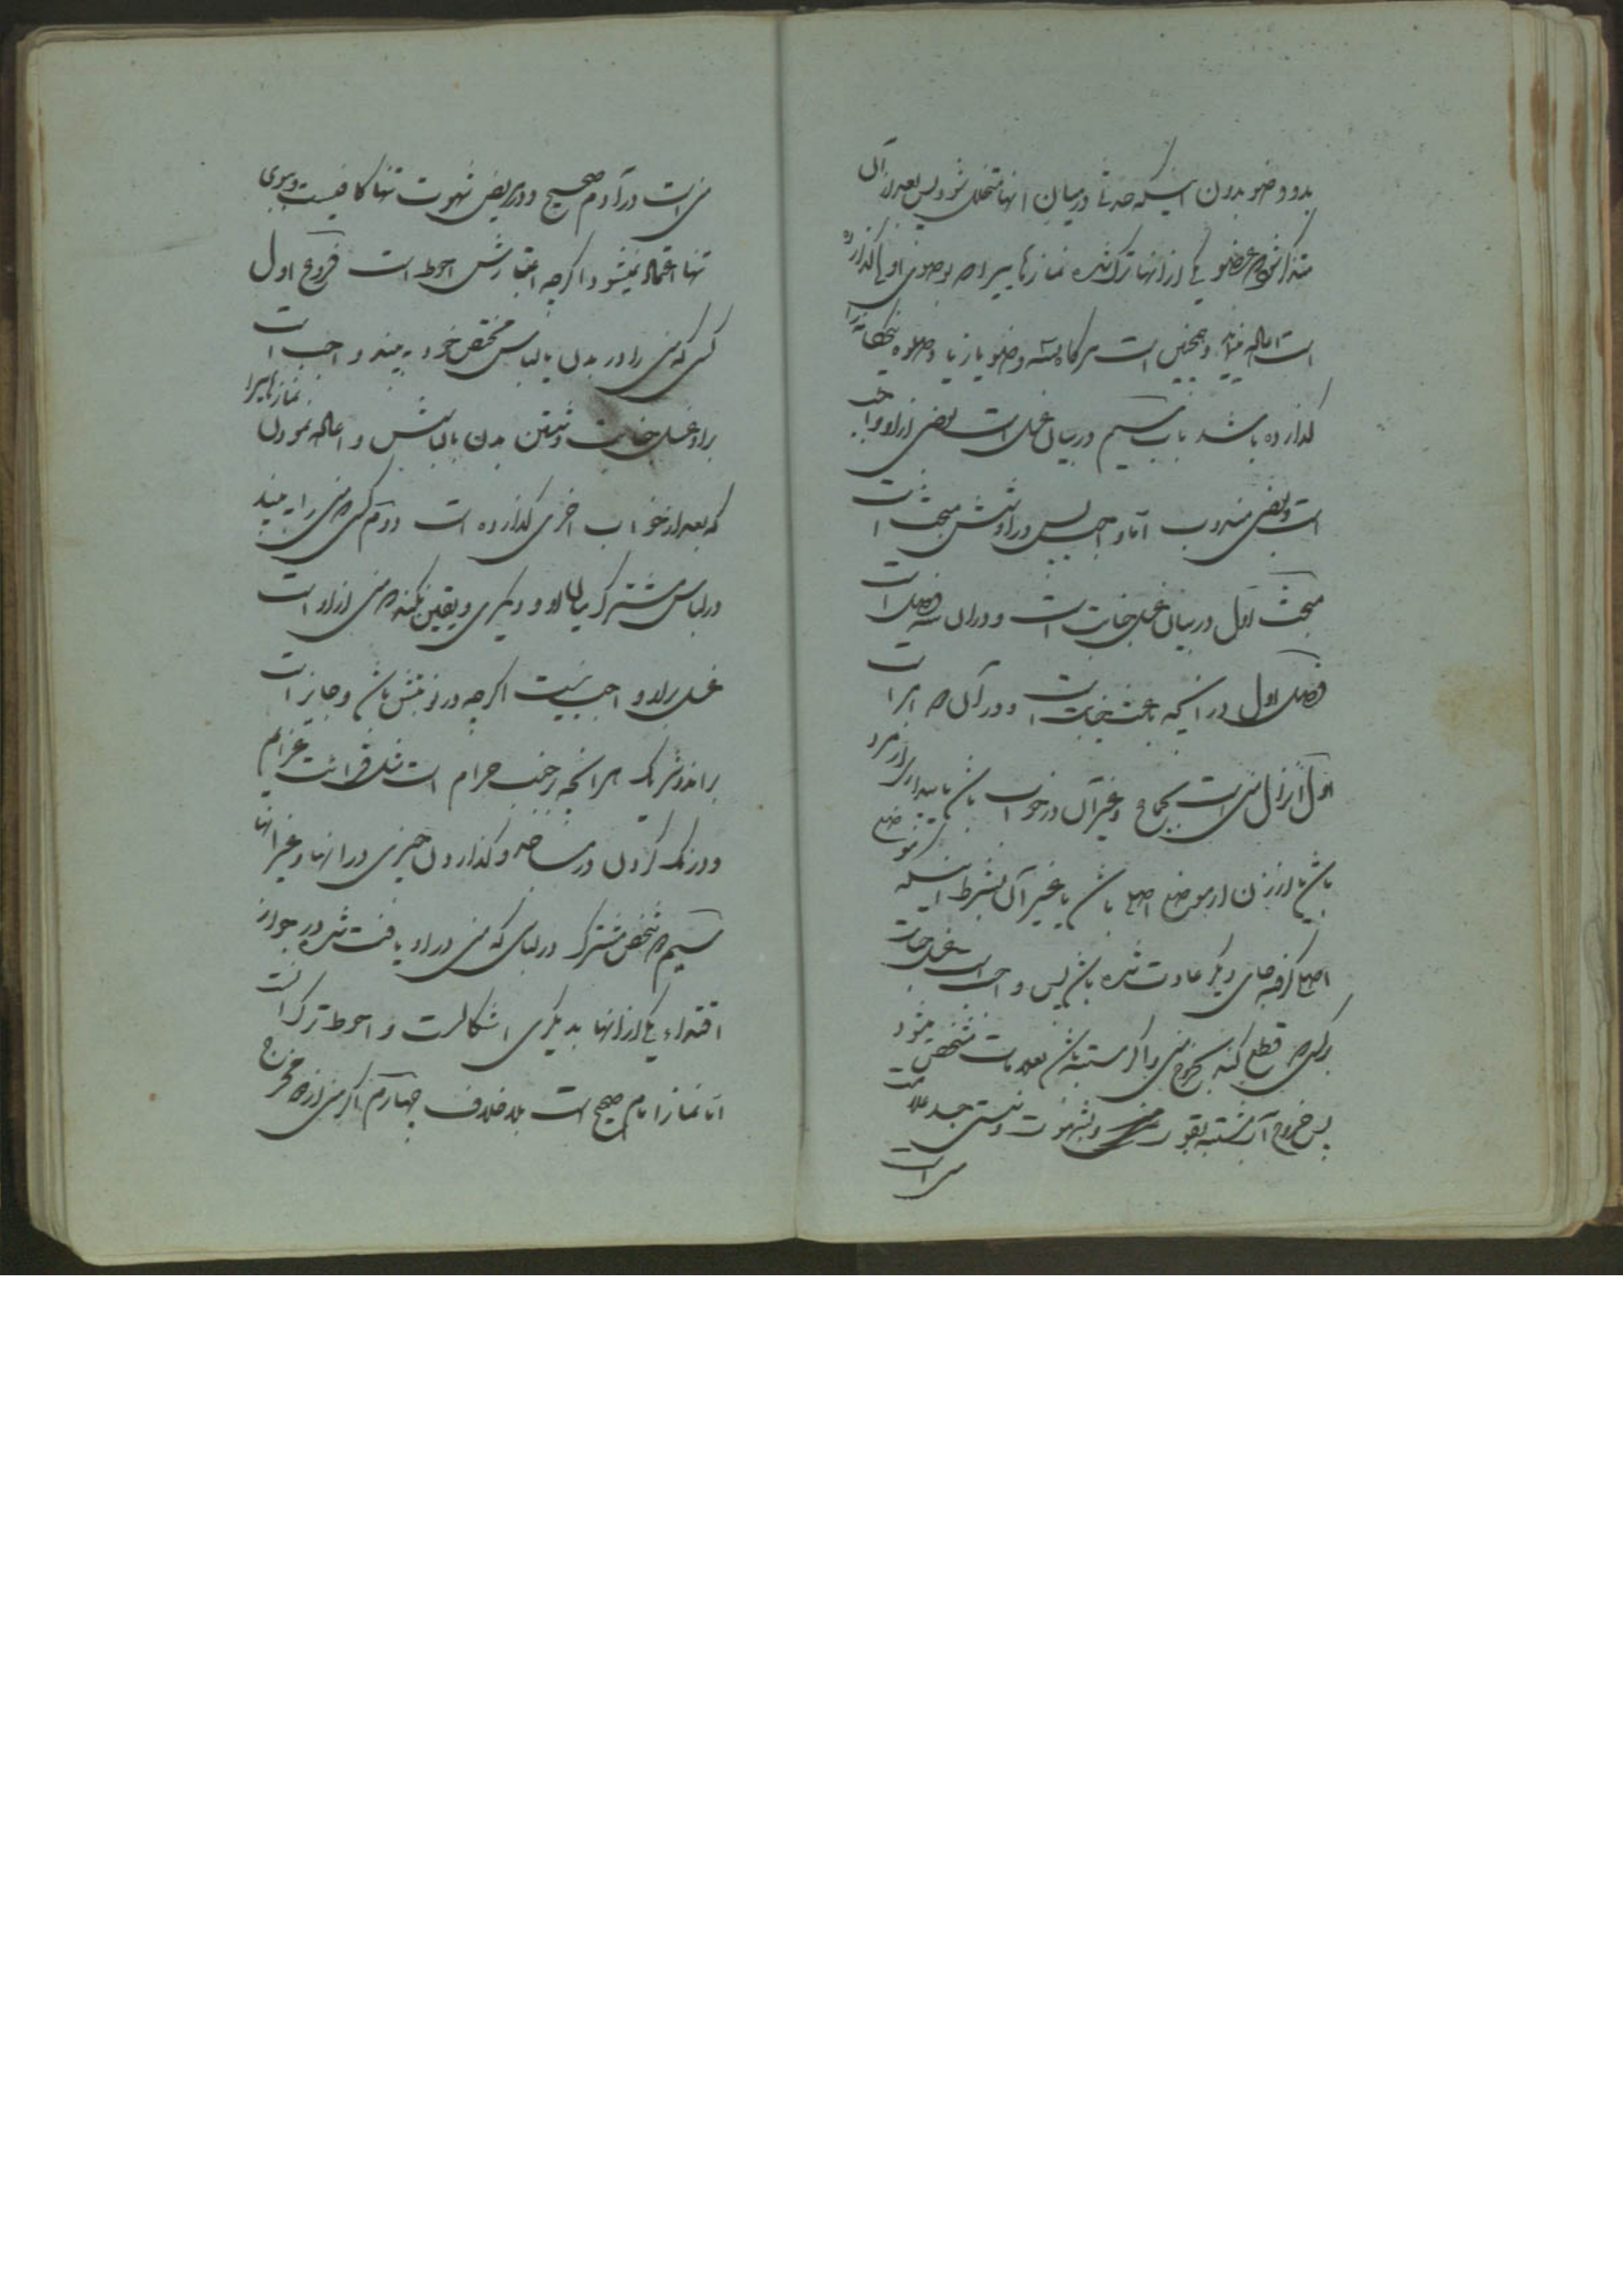 بدو وضو بدون اینکه حدثی در میان انها متخلل شود پس بعد از آن
متذکر شود که عضو یکی از انها ترک شده نمازهائیرا که بوضوی اولی گذارده
است اعاده مینماید و همچنین است هر گاه وضو یا زیاد
گذارده باشد باب سیم در بیان غسل است بعضی از او واجب
است و بعضی مندوب اما واجب پس در او شش مبحث است
مبحث اول در بیان غسل جنابت است و در ان سه فصل است
فصل اول در انکه باعث جنابت است و در آن دو امر است
اول انزال منی است بجماع و غیر آن در خواب باشد یا بیداری از مرد
باشد یا از زن از موضع اصلی باشد یا غیر آن بشرط اینکه غیر موضع
اصلی گرفته جای دیگر عادت شده باشد پس واجب است غسل جنابت
بر کسی که قطع کند بخروج منی و اگر مشتبه باشد بعلامات مشخص میشود
پس خروج آب مشتبه بقوت و بشهوت و سستی جسد علامت
منی است
منی است در آدم صحیح و در مریض شهوت تنها کافیست و ببوی
تنها اعتماد نمیشود اگرچه اعتبارش احوط است فروع اول
کسی که منی را در بدن یا لباس مختص خود به بیند واجب است
بر او غسل جنابت و شستن بدن یا لباسش و اعاده نمودن نمازهائیرا
که بعد از خواب اخری گذارده است دوم کسی که منی را به بیند
در لباس مشترک میان او و دیگری و یقین نکند که منی از او است
غسل بر او واجب نیست اگرچه در نوبتش باشد و جایز است
بر هر دو شریک هر انچه بر جنب حرام است مثل قرائت عزایم
و درنگ کردن در مساجد و گذاردن چیزی در انها و غیر انها
سیم دو شخص مشترک در لباسی که منی در او یافت شده در جواز
اقتداء یکی از انها بدیگری اشکالست و احوط ترک است
اما نماز امام صحیح است بلا خلاف چهارم اگر منی از مخرج